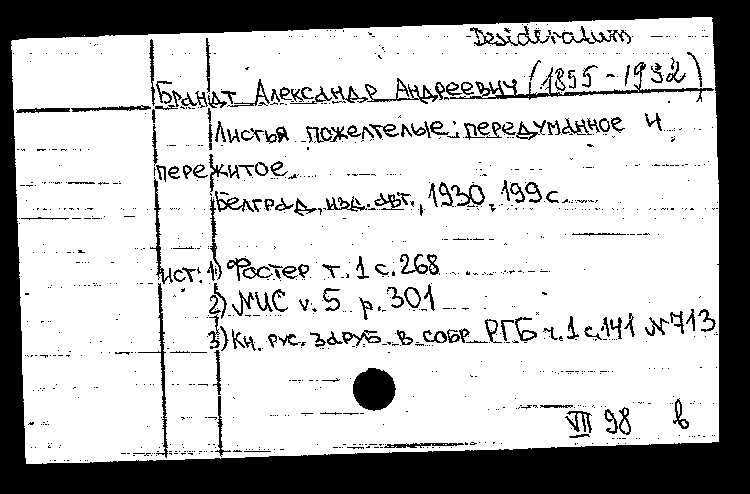 Desideratum
Брандт Александр Андреевич (1855-1932)
Листья пожелтелые: передуманное и
пережитое.
Белград, изд. авт., 1930, 199 с.
ист: 1) Фостер т. 1 с. 268
2) МИС v. 5 p. 301
3) Кн. рус. заруб. в собр РГБ ч. 1 с. 141 № 713
VII 98 в